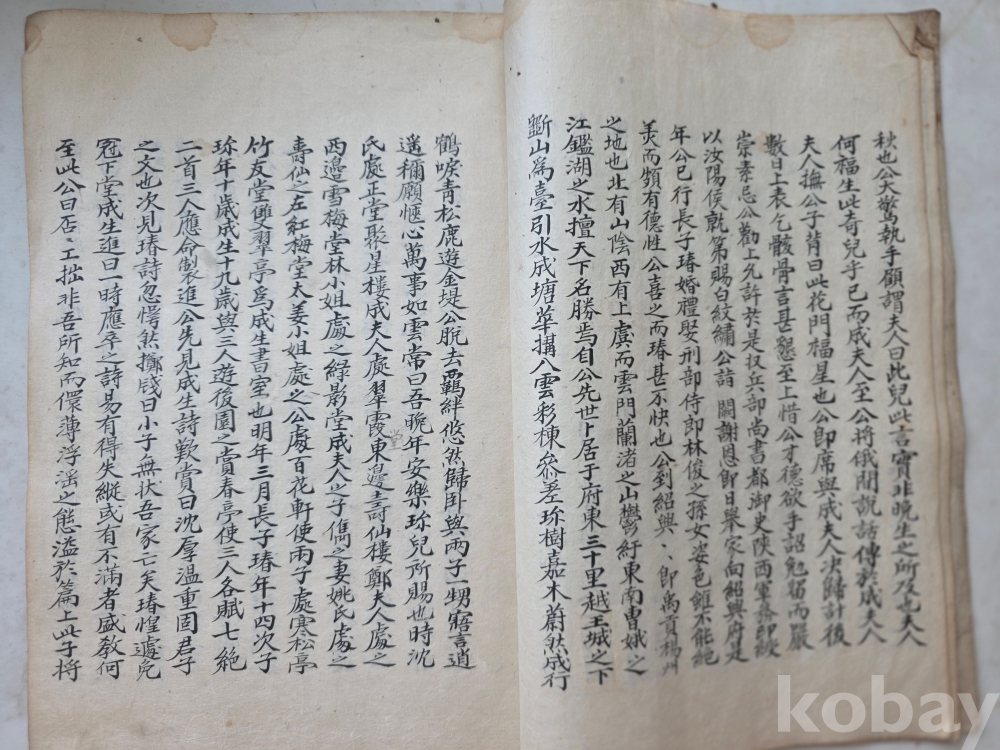 秋也公大驚執手顧謂夫人曰此兒此言實非晚生之所及也夫人
何福生此奇兒乎已而成夫人至公將俄間說話傳於成夫人
夫人撫公子背曰此花門福星也公即席與成夫人次歸計後
數日上表乞骸骨言甚懇至上惜公才德欲手詔勉留而嚴
崇素忌公勸上允許於是扠兵部尚書都御史陕西軍務印綬
以汝陽侯就第賜白紋繡公詣闕謝恩即日舉家向紹興府是
年公已行長子瑃婚禮娶刑部侍郎林俊之孫女姿色雖不能絶
美而頗有德性公喜之而瑃甚不快也公到紹興、即禹貢楊州
之地也北有山陰西有上虞而雲門蘭渚之山欝紆東南曺娥之
江鑑湖之水擅天下名勝焉自公先世卜居于府東三十里越王城之下
斷山爲臺引水成塘華搆八雲彩棟參差珎樹嘉木蔚然成行
鶴唳青松鹿遊金堤公脫去覊絆悠然歸卧與兩子一甥寤言逍
遙穪願愜心萬事如雲常曰吾晚年安樂珎兒所賜也時沈
氏處正堂聚星樓成夫人處翠霞東邊壽仙樓鄭夫人處之
西邊雪梅堂林小姐處之緑影堂成夫人之子儁之妻姚氏處之
壽仙之左紅梅堂太姜小姐處之公處百花軒使兩子處寒松亭
竹友堂雙翠亭爲成生書室也明年三月長子瑃年十四次子
珎年十歲成生十九歲與三人遊後園之賞春亭使三人各賦七絶
二首三人應命製進公先見成生詩歎賞曰沈厚溫重固君子
之文也次見瑃詩忽愕然擲牋曰小子無状吾家亡矣瑃惶遽免
冠下堂成生進曰一時應卒之詩易有得失縱或有不滿者盛教何
至此公曰否、工拙非吾所知而儇薄浮滛之態溢於篇上此子將
kobay